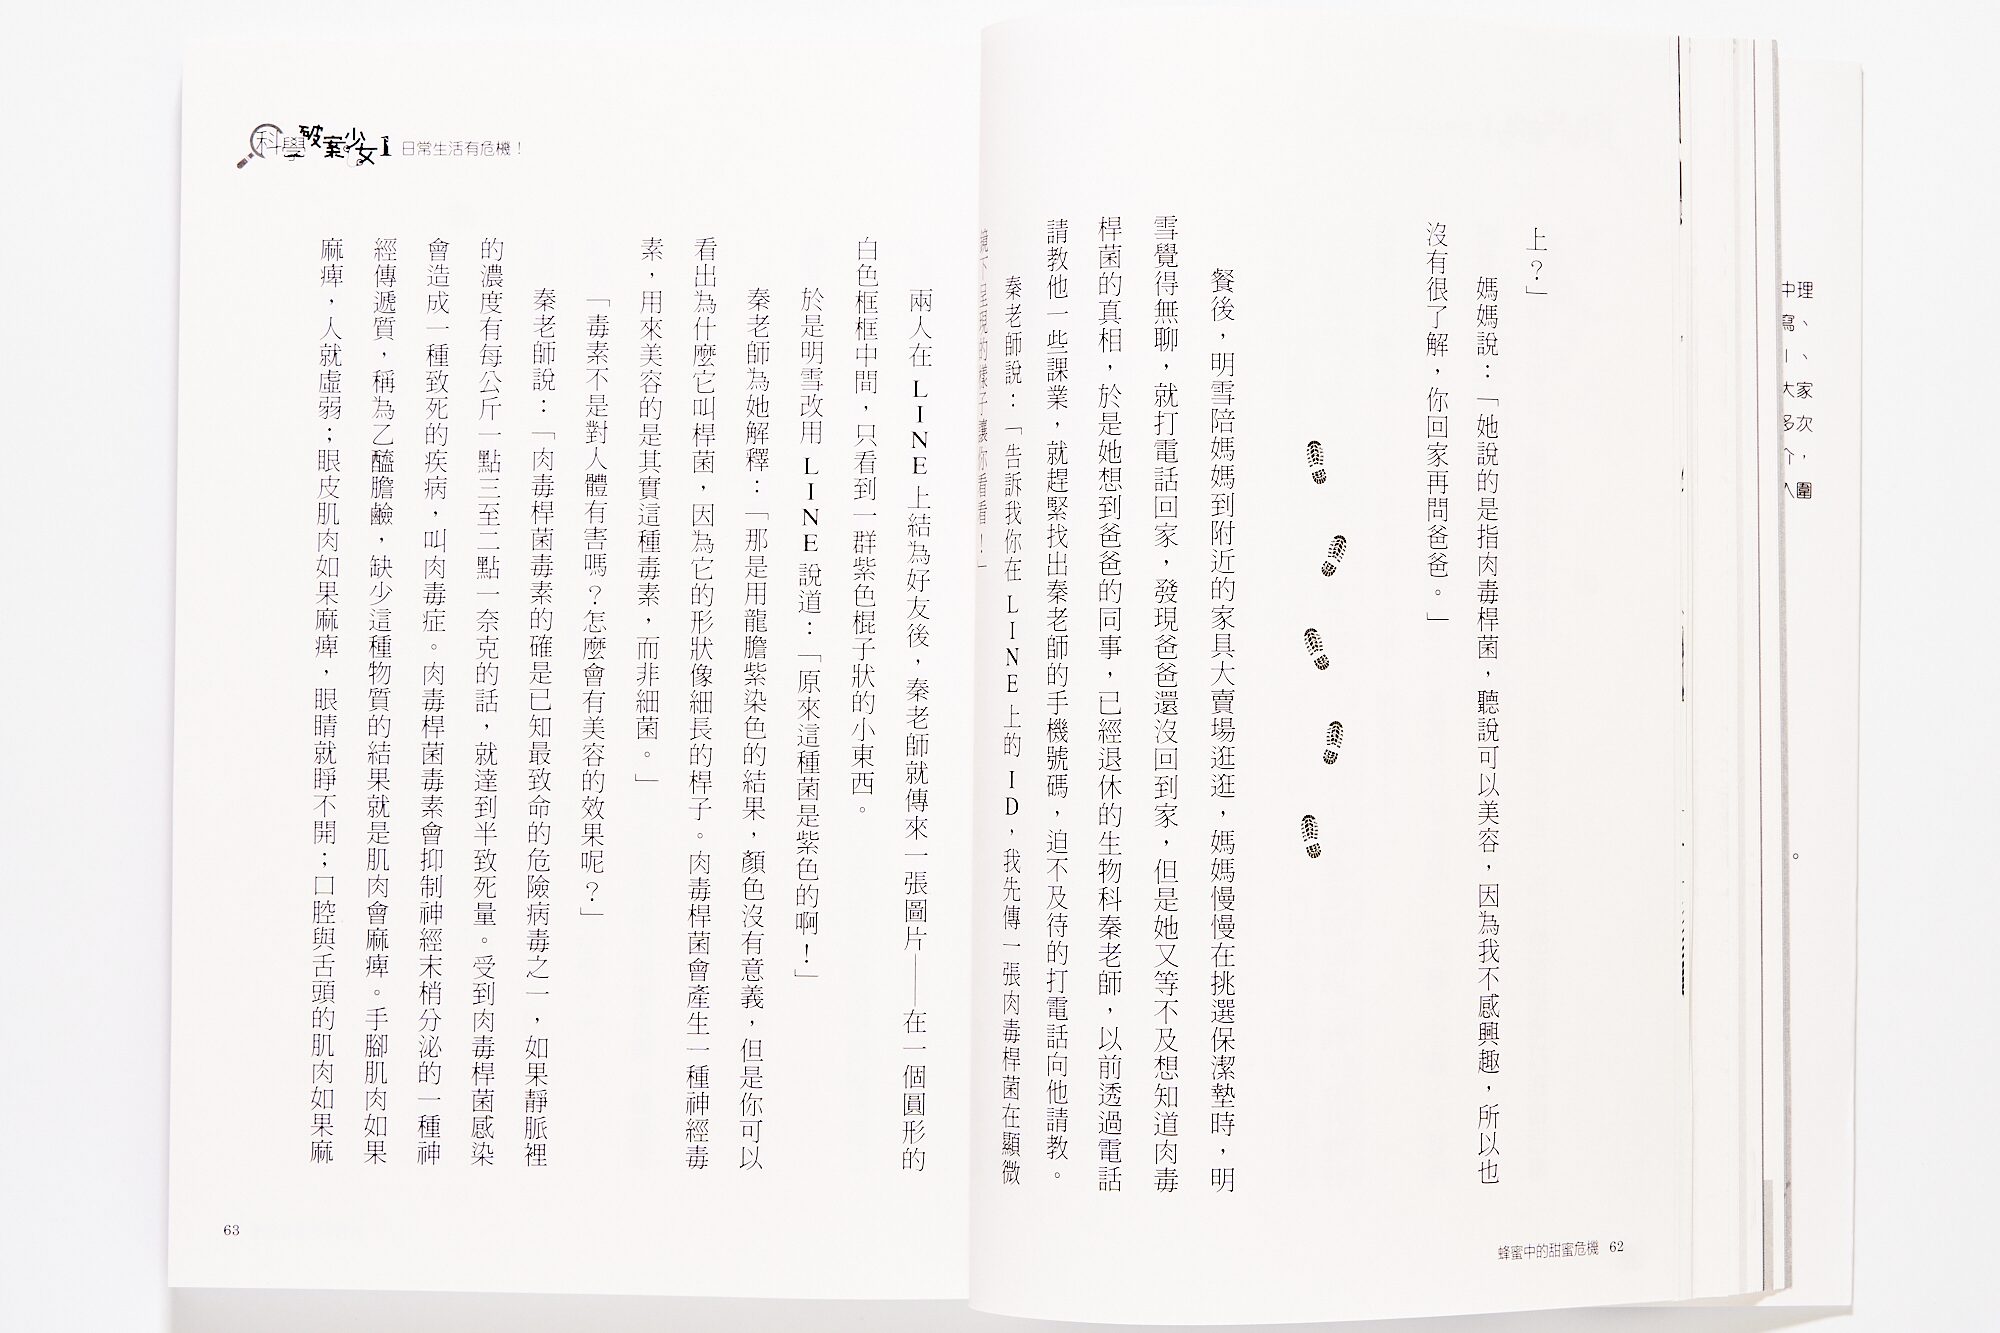 上？」
媽媽說：「她說的是指肉毒桿菌，聽說可以美容，因為我不感興趣，所以也
沒有很了解，你回家再問爸爸。」
餐後，明雪陪媽媽到附近的家具大賣場逛逛，媽媽慢慢在挑選保潔墊時，明
雪覺得無聊，就打電話回家，發現爸爸還沒回到家，但是她又等不及想知道肉毒
桿菌的真相，於是她想到爸爸的同事，已經退休的生物科秦老師，以前透過電話
請教他一些課業，就趕緊找出秦老師的手機號碼，迫不及待的打電話向他請教。
秦老師說：「告訴我你在 LINE 上的 ID，我先傳一張肉毒桿菌在顯微
鏡下呈現的樣子讓你看看！」
蜂蜜中的甜蜜危機 62
科學破案少女1 日常生活有危機！
兩人在 LINE 上結為好友後，秦老師就傳來一張圖片——在一個圓形的
白色框框中間，只看到一群紫色棍子狀的小東西。
於是明雪改用 LINE 說道：「原來這種菌是紫色的啊！」
秦老師為她解釋：「那是用龍膽紫染色的結果，顏色沒有意義，但是你可以
看出為什麼它叫桿菌，因為它的形狀像細長的桿子。肉毒桿菌會產生一種神經毒
素，用來美容的是其實這種毒素，而非細菌。」
「毒素不是對人體有害嗎？怎麼會有美容的效果呢？」
秦老師說：「肉毒桿菌毒素的確是已知最致命的危險病毒之一，如果靜脈裡
的濃度有每公斤一點三至二點一奈克的話，就達到半致死量。受到肉毒桿菌感染
會造成一種致死的疾病，叫肉毒症。肉毒桿菌毒素會抑制神經末梢分泌的一種神
經傳遞質，稱為乙醯膽鹼，缺少這種物質的結果就是肌肉會麻痺。手腳肌肉如果
麻痺，人就虛弱；眼皮肌肉如果麻痺，眼睛就睜不開；口腔與舌頭的肌肉如果麻
63